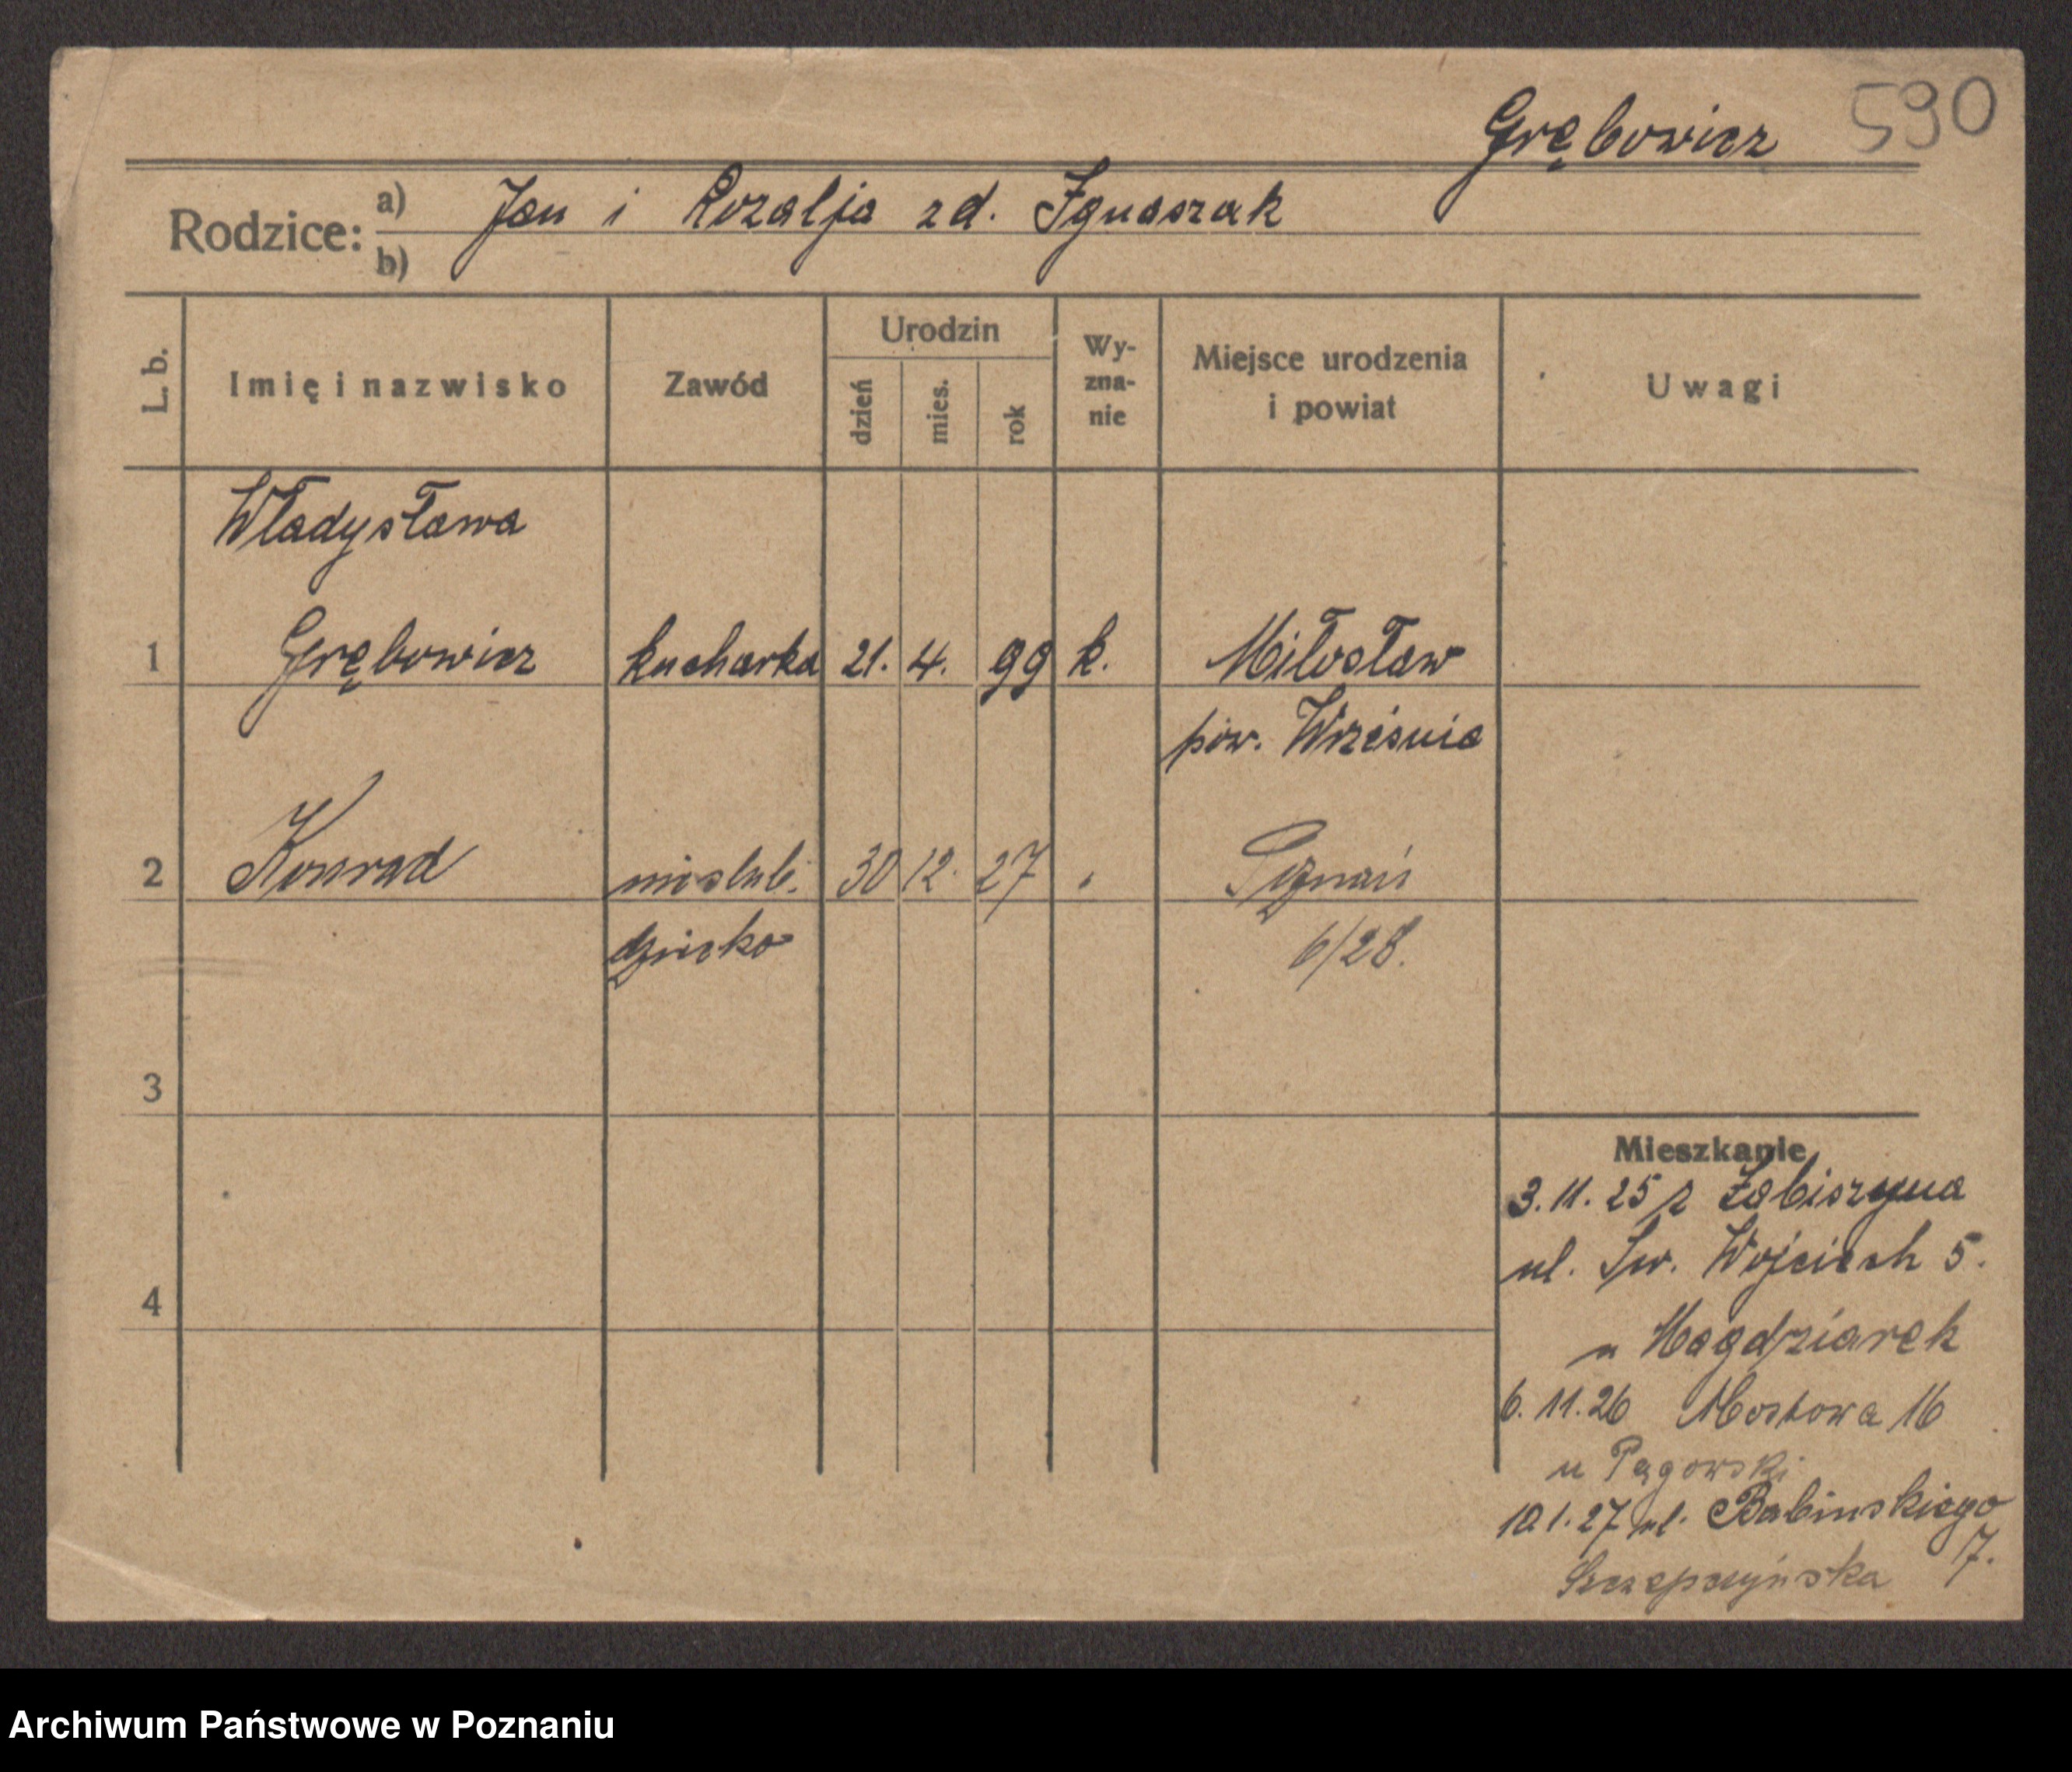 Grębowicz 590
Rodzice: a) Jan i Rozalja zd. Ignaszak
b)
L. b. Imię i nazwisko Zawód Urodzin dzień mies. rok Wy-zna-nie Miejsce urodzenia i powiat Uwagi
Władysława
1 Grębowicz kucharka 21. 4. 99 k. Miłosław
pow. Września
2 Konrad nieślub. 30 12. 27 Poznań
dziecko 6/28.
3
4
Mieszkanie
3. 11. 25 z Łabiszyna
ul. Św. Wojciech 5.
u Magdziarek
6. 11. 26 Mostowa 16
u Pągowski
10 1. 27 ul. Babinskiego
17.
Szczepczyńska
Archiwum Państwowe w Poznaniu